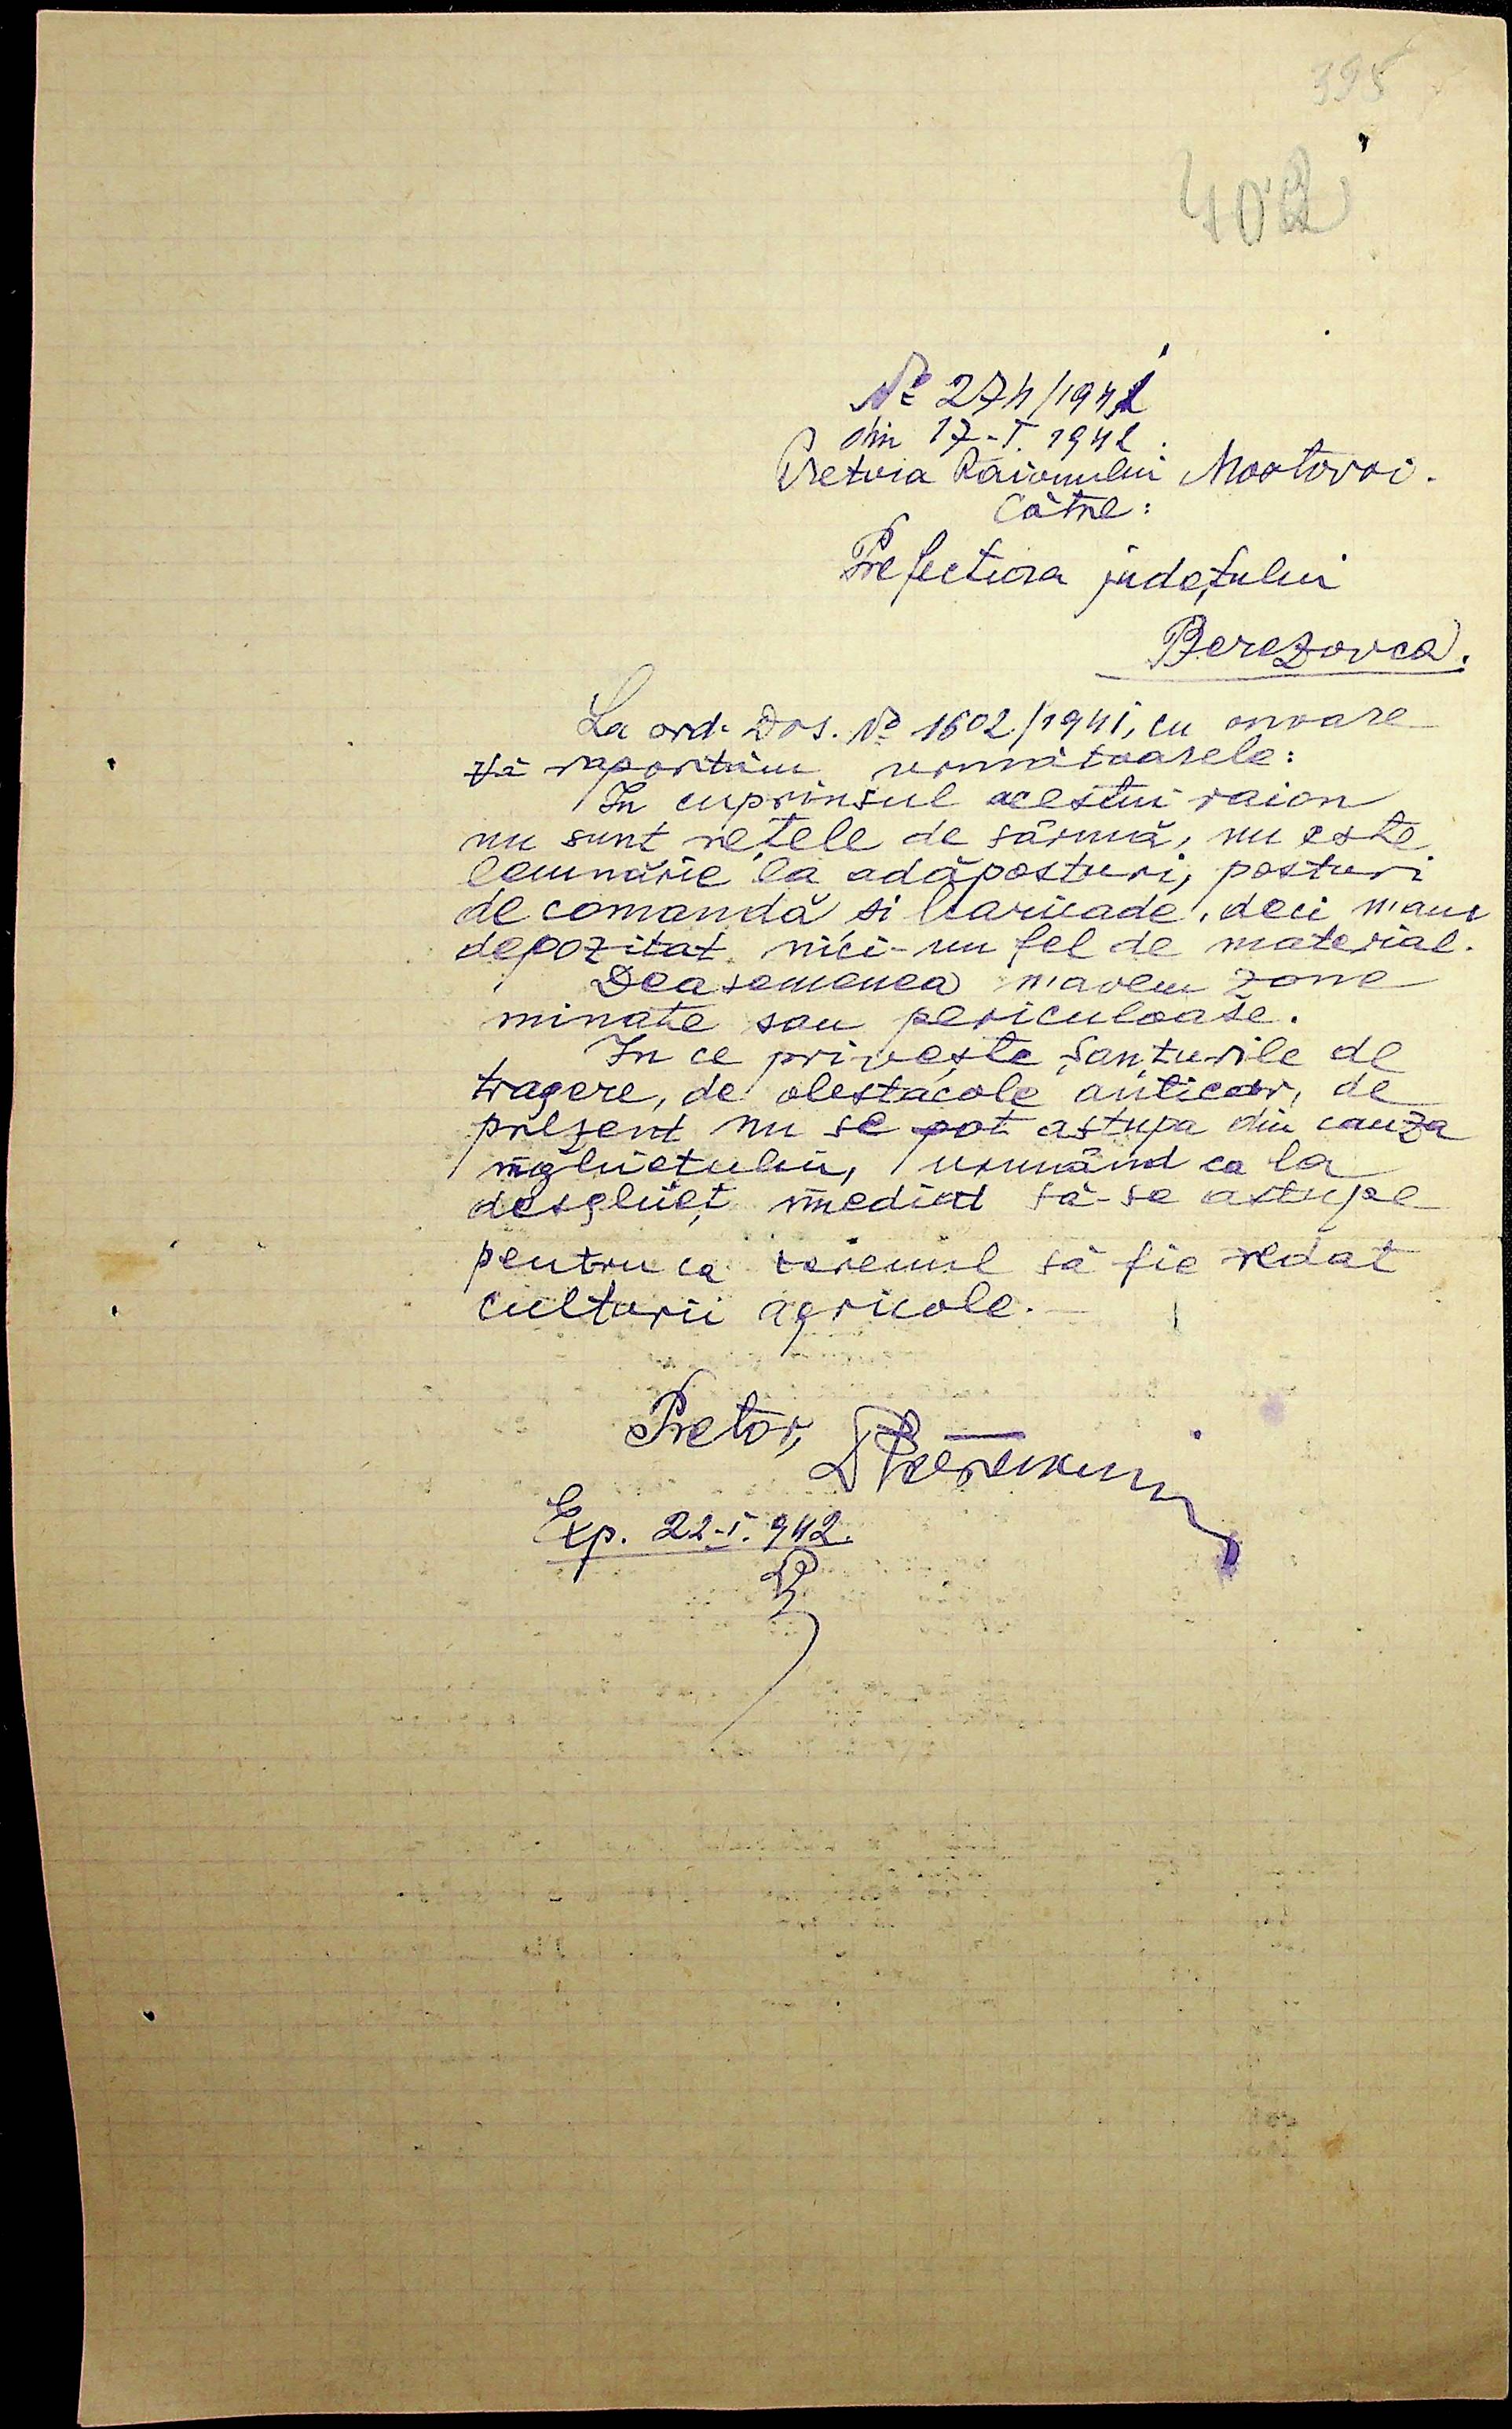 395
402
№ 274/1942
din 17-I. 1942.
Pretura Raionului Mostovoi.
Către:
Prefectura județului
Berezovca.
La ord. Dvs. № 1602/1941, cu onoare
Vă raportăm următoarele:
In cuprinsul acestui raion
nu sunt rețele de sârmă, nu este
lemnărie la adăposturi, posturi
de comandă si baricade, deci n'am
depozitat nici-un fel de material.
Deasemenea n'avem zone
minate sau periculoase.
In ce privește șanțurile de
tragere, de obestacole anticar, de
prezent nu se pot astupa din cauza
înghiețului, urmând ca la
desghieț imediat să-se astupe
pentru ca terenul să fie redat
culturii agricole.
Pretor,
Exp. 22-I. 942.